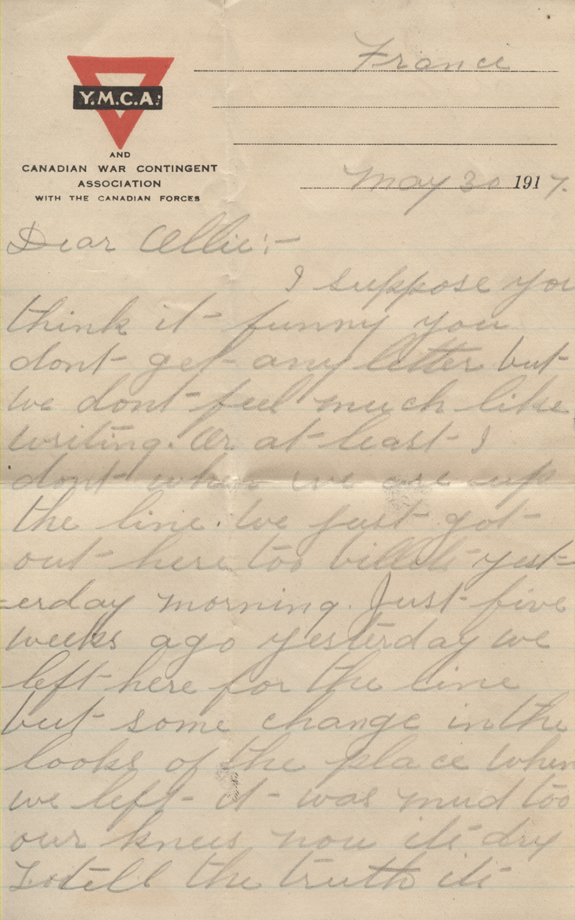 France
Y.M.C.A.
AND
CANADIAN WAR CONTINGENT
ASSOCIATION
WITH THE CANADIAN FORCES
May 30 1917.
Dear Ellie:-
I suppose you
think it funny you
dont get any letter but
we dont feel much like
writing. Or at least I
dont when we are up
the line. We just got
out here too billets yest-
-erday morning. Just five
weeks ago yesterday we
left here for the line
but some change in the
looks of the place when
we left it was mud too
our knees now its dry
Totell the truth its